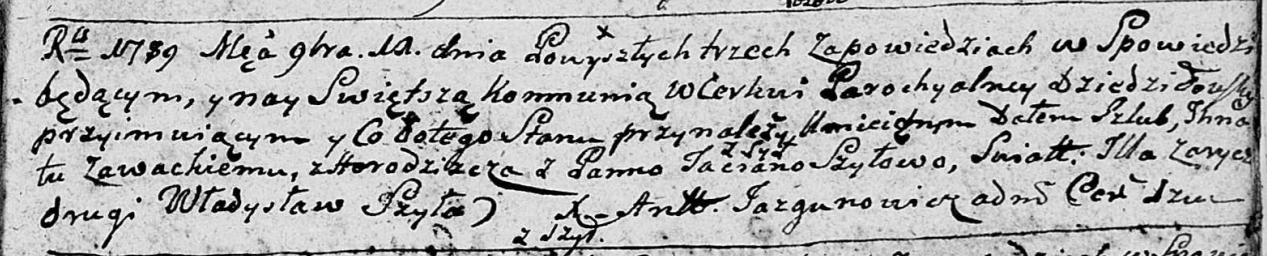 Rᵘ 1789 Męą 9bra. 11. dnia Powyszłych trzech Zapowiedziach w Spowiedzi
będącym, y nay Swiętszą Kommunią w Cerkwi Parochyalney Dziedziłowsky
przyimuiącym y Co do tego Stanu przynależy Umieiętnym Dałem Szlub, Ihna
tu Zawackiemu, z Horodziszcza z Panno Tacianą Szyłowo, z Szył. Swiatt: Illa Zarycz
drugi Władysław Szyła z Szył. X. Antt. Jazgunowicz adm Cer Dzie